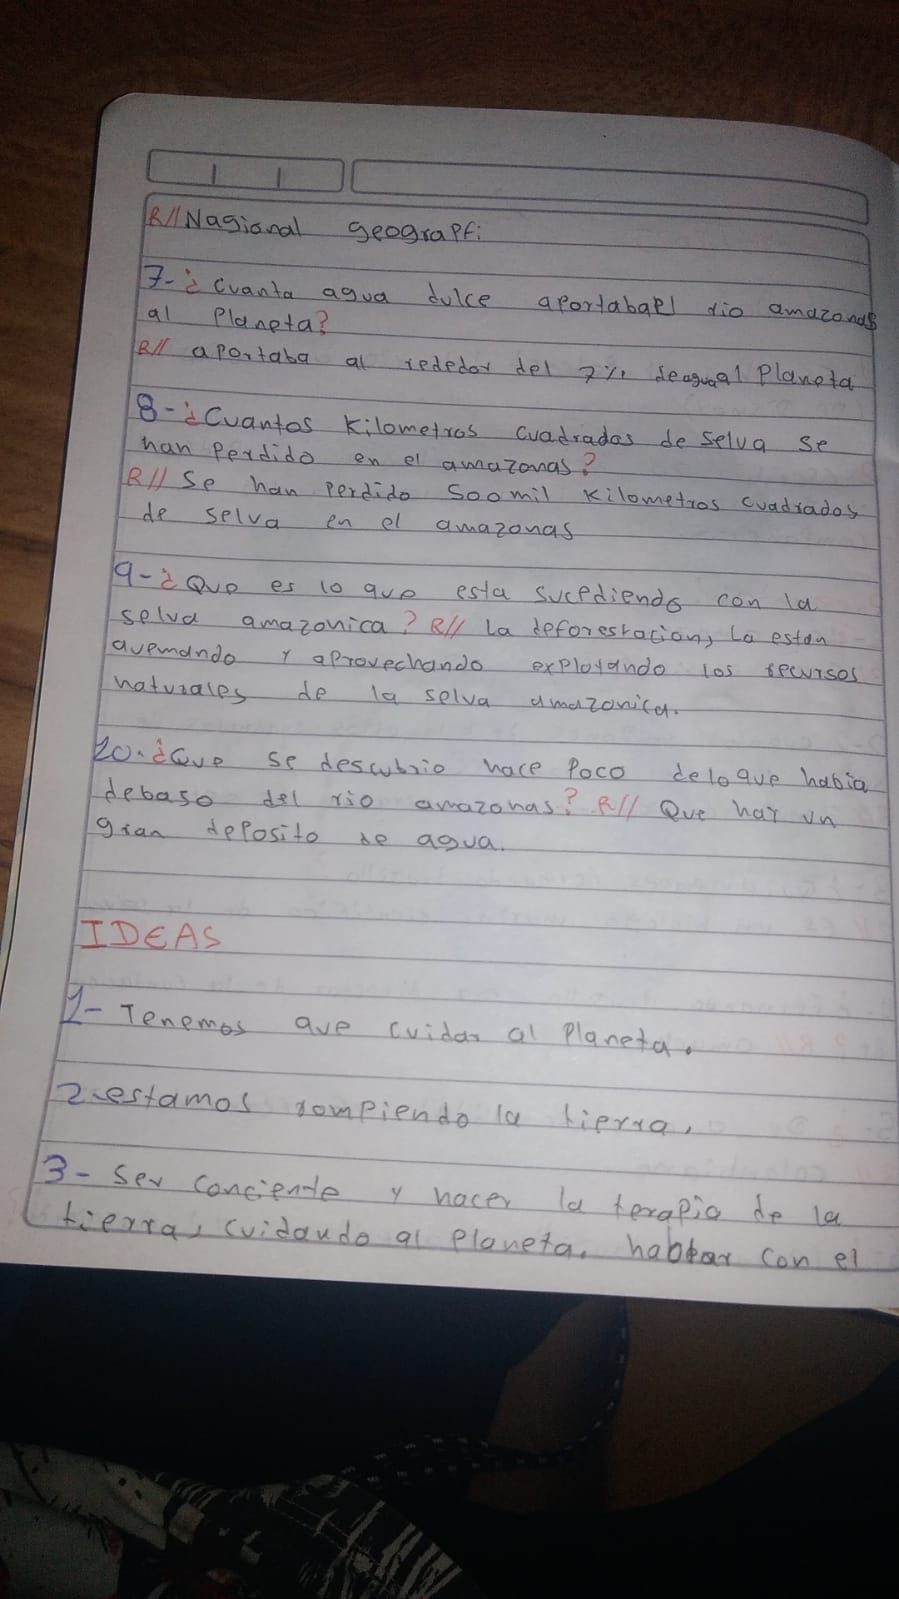 R// Nagional geografi
7- ¿Cuanta agua dulce aportaba el rio amazonas
al planeta?
R// aportaba al rededor del 7% de agua al planeta
8- ¿Cuantos Kilometros cuadrados de selva se
han perdido en el amazonas?
R// Se han perdido 500 mil Kilometros cuadrados
de selva en el amazonas
9- ¿Que es lo que esta sucediendo con la
selva amazonica? R// La deforestacion, La estan
quemando y aprovechando explotando los recursos
naturales de la selva amazonica.
10. ¿Que se descubrio hace poco de lo que habia
debaso del rio amazonas? R// Que hay un
gran deposito de agua.
IDEAS
1- Tenemos que cuidar al planeta.
2- estamos rompiendo la tierra,
3- Ser conciente y hacer la terapia de la
tierra, cuidando al planeta. hablar con el